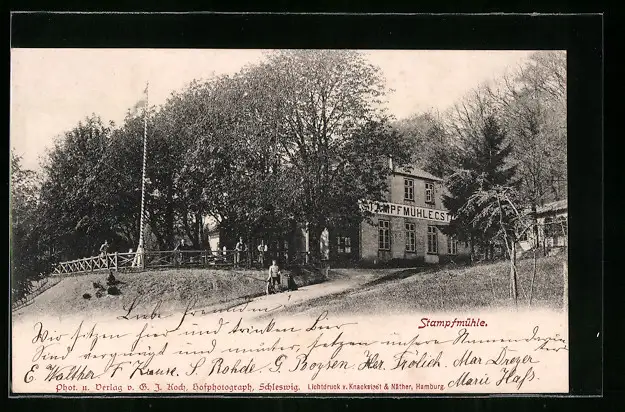 STAMPFMUHLE
Stampfmühle.
Liebe Freundin
Wir sitzen hier und trinken Bier
Sind vergnügt und munter, setzen unsere Namen drunter.
E. Walther F. Krause. S. Rohde G. Boysen Her. Frölich. Mar Dreyer
Marie Hass
Phot. u. Verlag v. G. J. Koch, Hofphotograph, Schleswig. Lichtdruck v. Knackstedt & Näther, Hamburg.